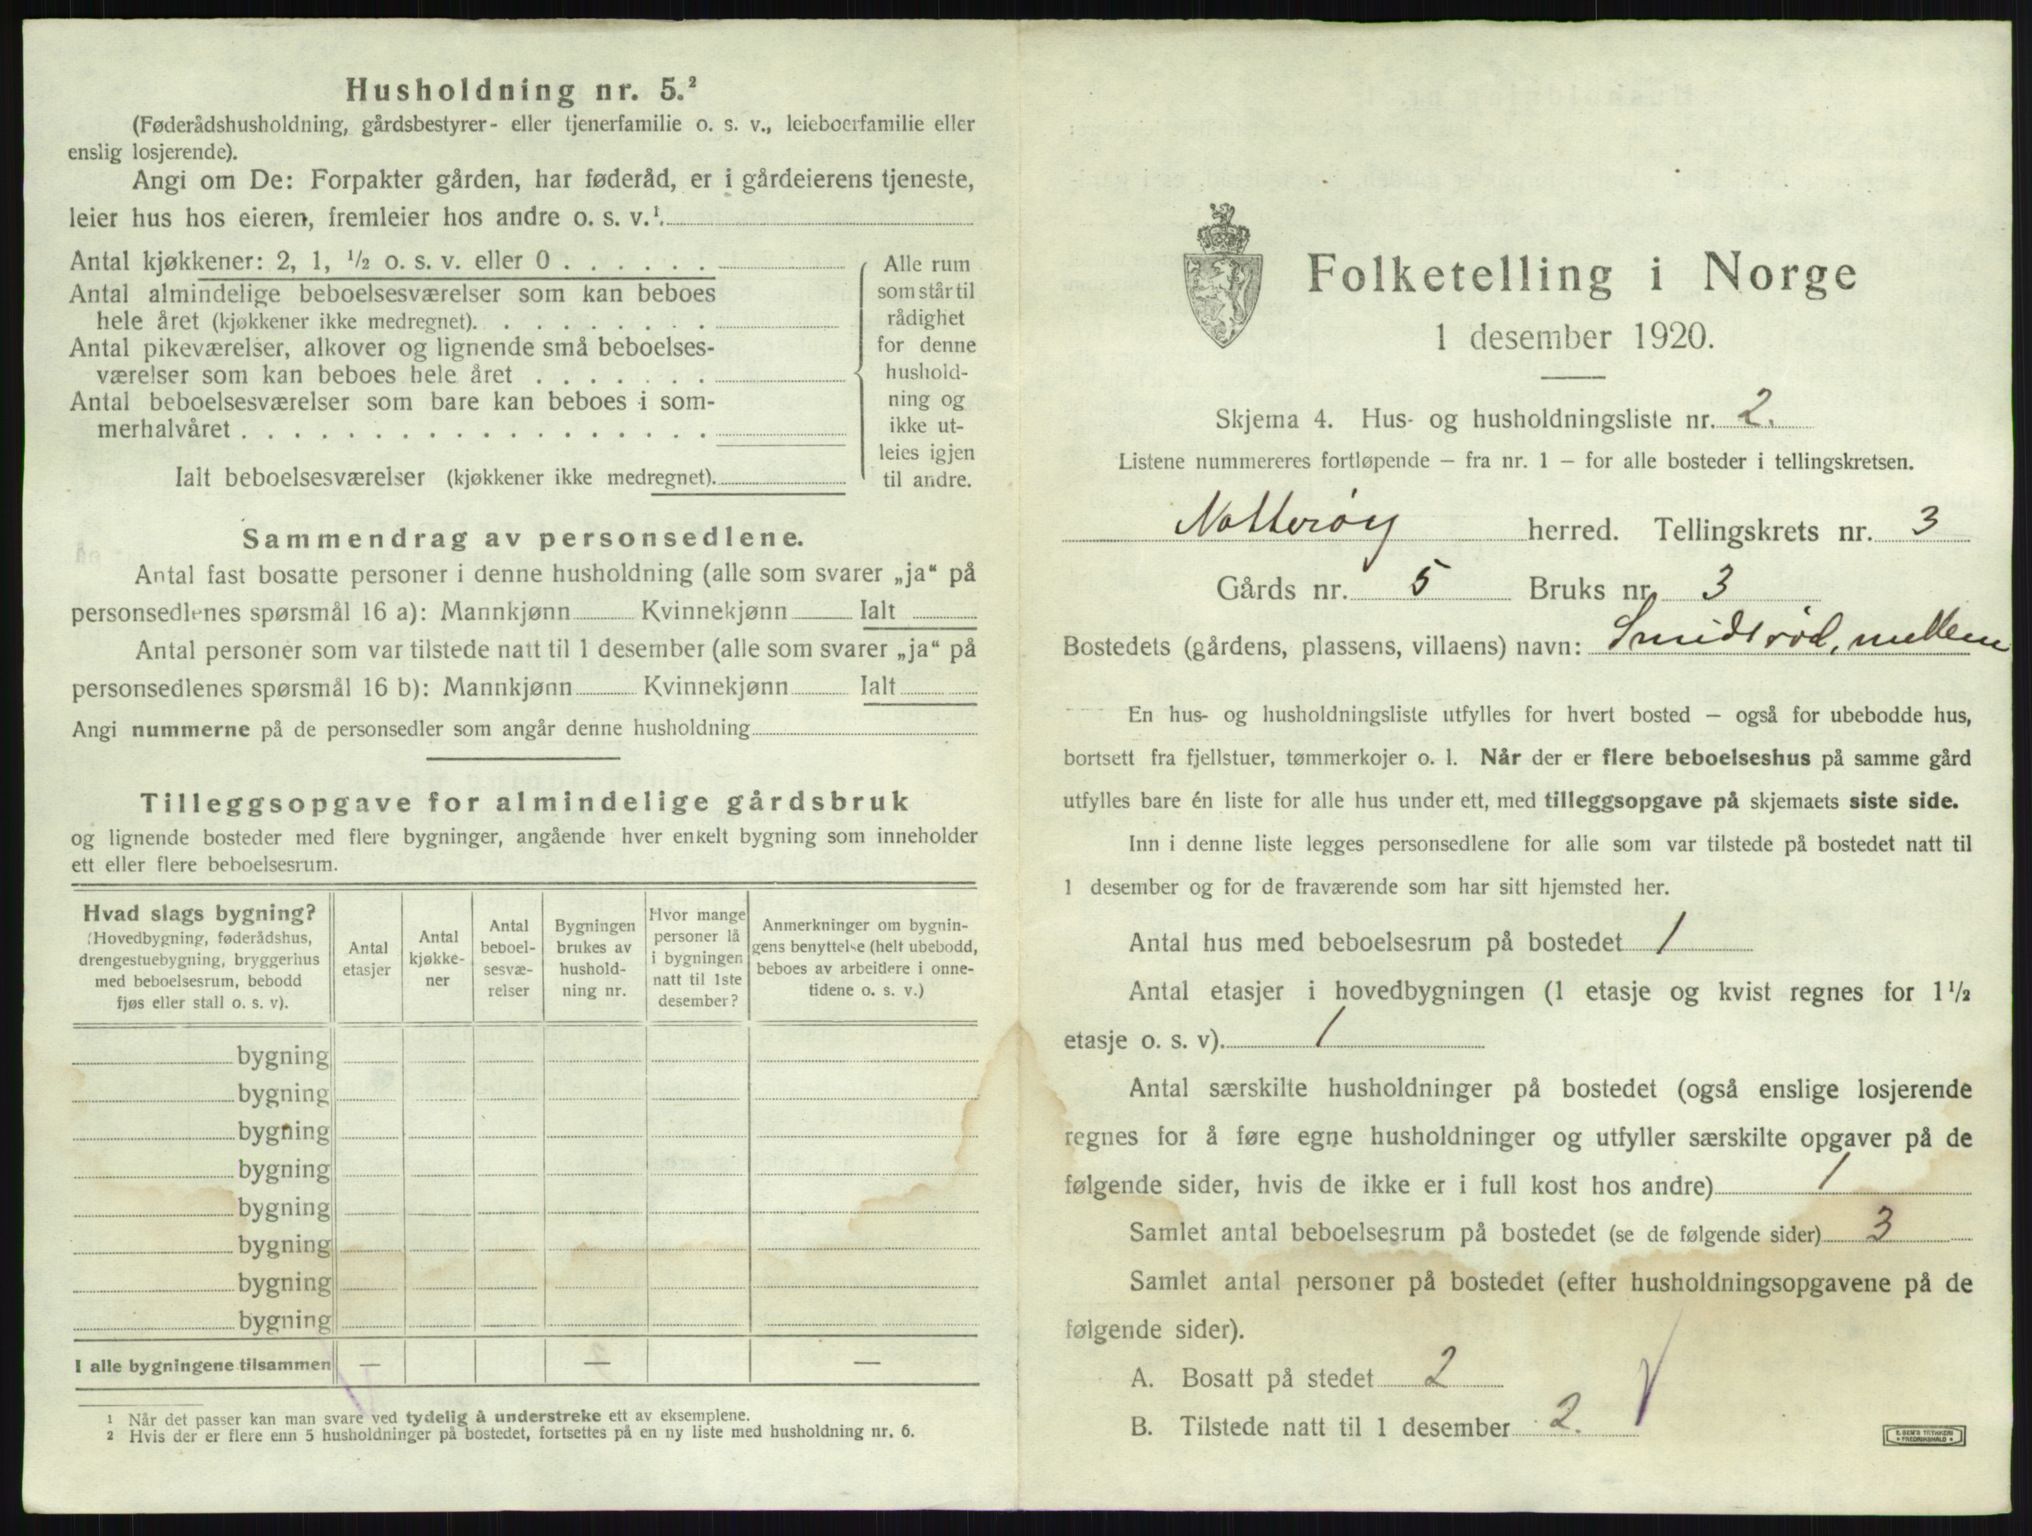 Husholdning nr. 5.²
(Føderådshusholdning, gårdsbestyrer- eller tjenerfamilie o. s. v., leieboerfamilie eller
enslig losjerende).
Angi om De: Forpakter gården, har føderåd, er i gårdeierens tjeneste,
leier hus hos eieren, fremleier hos andre o. s. v.¹
Antal kjøkkener: 2, 1, ¹/₂ o. s. v. eller 0 . . . . . .
Antal almindelige beboelsesværelser som kan beboes
hele året (kjøkkener ikke medregnet). . . . . . . . .
Antal pikeværelser, alkover og lignende små beboelses-
værelser som kan beboes hele året . . . . . . .
Antal beboelsesværelser som bare kan beboes i som-
merhalvåret . . . . . . . . . . . . . . . . . .
Ialt beboelsesværelser (kjøkkener ikke medregnet).
Alle rum
som står til
rådighet
for denne
hushold-
ning og
ikke ut-
leies igjen
til andre.
Sammendrag av personsedlene.
Antal fast bosatte personer i denne husholdning (alle som svarer „ja“ på
personsedlenes spørsmål 16 a): Mannkjønn Kvinnekjønn Ialt
Antal personer som var tilstede natt til 1 desember (alle som svarer „ja“ på
personsedlenes spørsmål 16 b): Mannkjønn Kvinnekjønn Ialt
Angi nummerne på de personsedler som angår denne husholdning
Tilleggsopgave for almindelige gårdsbruk
og lignende bosteder med flere bygninger, angående hver enkelt bygning som inneholder
ett eller flere beboelsesrum.
Hvad slags bygning?
(Hovedbygning, føderådshus,
drengestuebygning, bryggerhus
med beboelsesrum, bebodd
fjøs eller stall o. s. v).
Antal
etasjer
Antal
kjøkke-
ner
Antal
beboel-
sesvæ-
relser
Bygningen
brukes av
hushold-
ning nr.
Hvor mange
personer lå
i bygningen
natt til 1ste
desember?
Anmerkninger om bygnin-
gens benyttelse (helt ubebodd,
beboes av arbeidere i onne-
tidene o. s. v.)
bygning
bygning
bygning
bygning
bygning
bygning
bygning
bygning
I alle bygningene tilsammen — — —
1 Når det passer kan man svare ved tydelig å understreke ett av eksemplene.
2 Hvis der er flere enn 5 husholdninger på bostedet, fortsettes på en ny liste med husholdning nr. 6.
Folketelling i Norge
1 desember 1920.
Skjema 4. Hus- og husholdningsliste nr. 2.
Listene nummereres fortløpende – fra nr. 1 – for alle bosteder i tellingskretsen.
Nøtterøy herred. Tellingskrets nr. 3
Gårds nr. 5 Bruks nr. 3
Bostedets (gårdens, plassens, villaens) navn: Smidsrød, mellem
En hus- og husholdningsliste utfylles for hvert bosted – også for ubebodde hus,
bortsett fra fjellstuer, tømmerkojer o. l. Når der er flere beboelseshus på samme gård
utfylles bare én liste for alle hus under ett, med tilleggsopgave på skjemaets siste side.
Inn i denne liste legges personsedlene for alle som var tilstede på bostedet natt til
1 desember og for de fraværende som har sitt hjemsted her.
Antal hus med beboelsesrum på bostedet 1
Antal etasjer i hovedbygningen (1 etasje og kvist regnes for 1¹/₂
etasje o. s. v). 1
Antal særskilte husholdninger på bostedet (også enslige losjerende
regnes for å føre egne husholdninger og utfyller særskilte opgaver på de
følgende sider, hvis de ikke er i full kost hos andre) 1
Samlet antal beboelsesrum på bostedet (se de følgende sider) 3
Samlet antal personer på bostedet (efter husholdningsopgavene på de
følgende sider).
A. Bosatt på stedet 2
B. Tilstede natt til 1 desember 2.
E. SEM'S TRYKKERI
FREDRIKSHALD